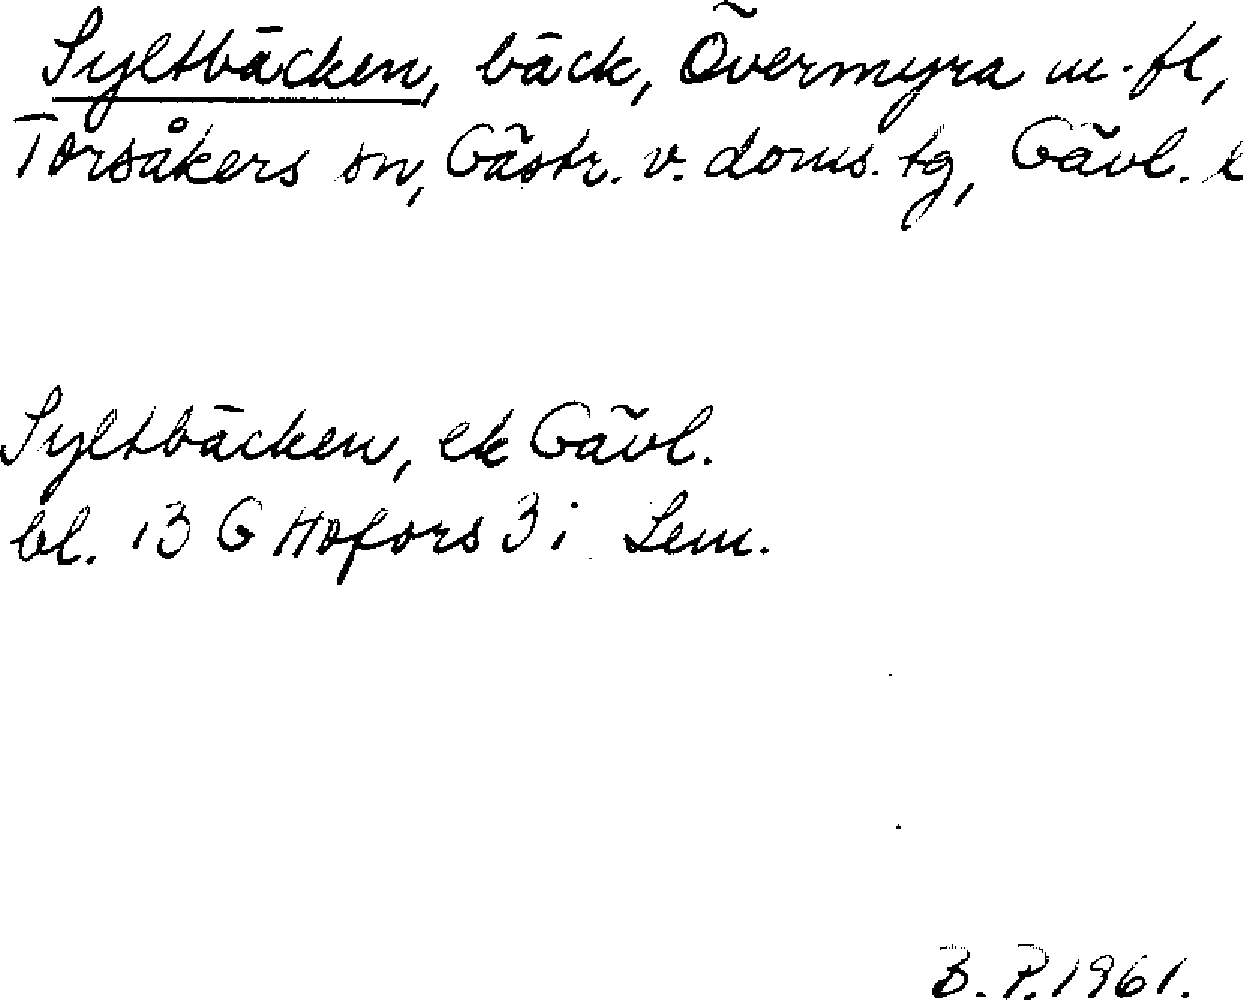 Syltbäcken, bäck, Övermyra m. fl,
Torsåkers sn, Gästr. v. doms. tg, Gävl. l
Syltbäcken, ek Gävl.
bl. 13 G Hofors 3 i Lem.
B. P. 1961.